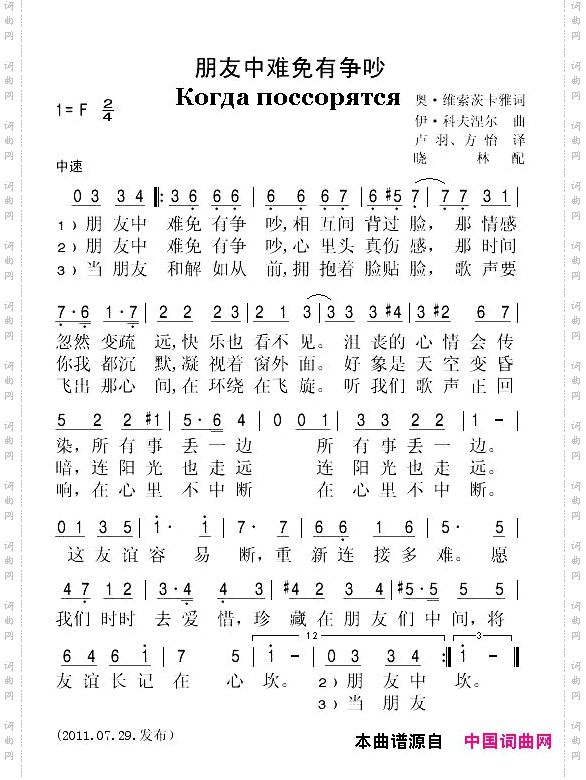 朋友中难免有争吵
Когда поссорятся
1= F 2/4
奥·维索茨卡雅词
伊·科夫涅尔 曲
卢 羽、方 怡 译
晓 林 配
中速
0 3 3 4 ‖: 3 6 6 6 | 6 6 6 7 | 6 #5 7 | 7 7 3 1 |
1）朋 友中 难免 有争 吵,相 互间 背过 脸，那 情感
2）朋 友中 难免 有争 吵,心 里头 真伤 感，那 时间
3）当 朋友 和解 如从 前,拥 抱着 脸贴 脸，歌 声要
7·6 1·7 | 2 2 2 3 | 2 1 3 | 3 3 3 #4 | 3 #2 6 7 |
忽然 变疏 远,快乐也 看不 见。沮 丧的 心 情 会 传
你我 都沉 默,凝 视着 窗外 面。好 象是 天 空 变 昏
飞出 那心 间,在环绕 在飞 旋。听 我们 歌 声 正 回
5 2 2 #1 | 5·6 4 | 0 0 1 | 3 3 2 2 | 1 - |
染，所 有 事 丢 一 边 所 有 事 丢 一 边。
暗，连 阳 光 也 走 远 连 阳 光 也 走 远。
响，在 心 里 不 中 断 在 心 里 不 中 断。
0 1 3 5 | 1· 1 | 7· 7 | 6 6 1 6 | 5· 5 |
这 友 谊 容 易 断，重 新 连 接 多 难。愿
4 7 1 2 | 3·4 4 3 | #4 2 3 4 | #5·5 5 5 |
我们 时时 去 爱 惜，珍 藏 在 朋 友 们 中 间，将
1 2 3
6 4 6 1 | 7 5 | 1 - | 0 3 3 4 :‖ 1 - ‖
友 谊 长 记 在 心 坎。 2）朋 友 中 坎。
3）当 朋 友
(2011.07.29.发布)
本曲谱源自 中国词曲网
词曲网